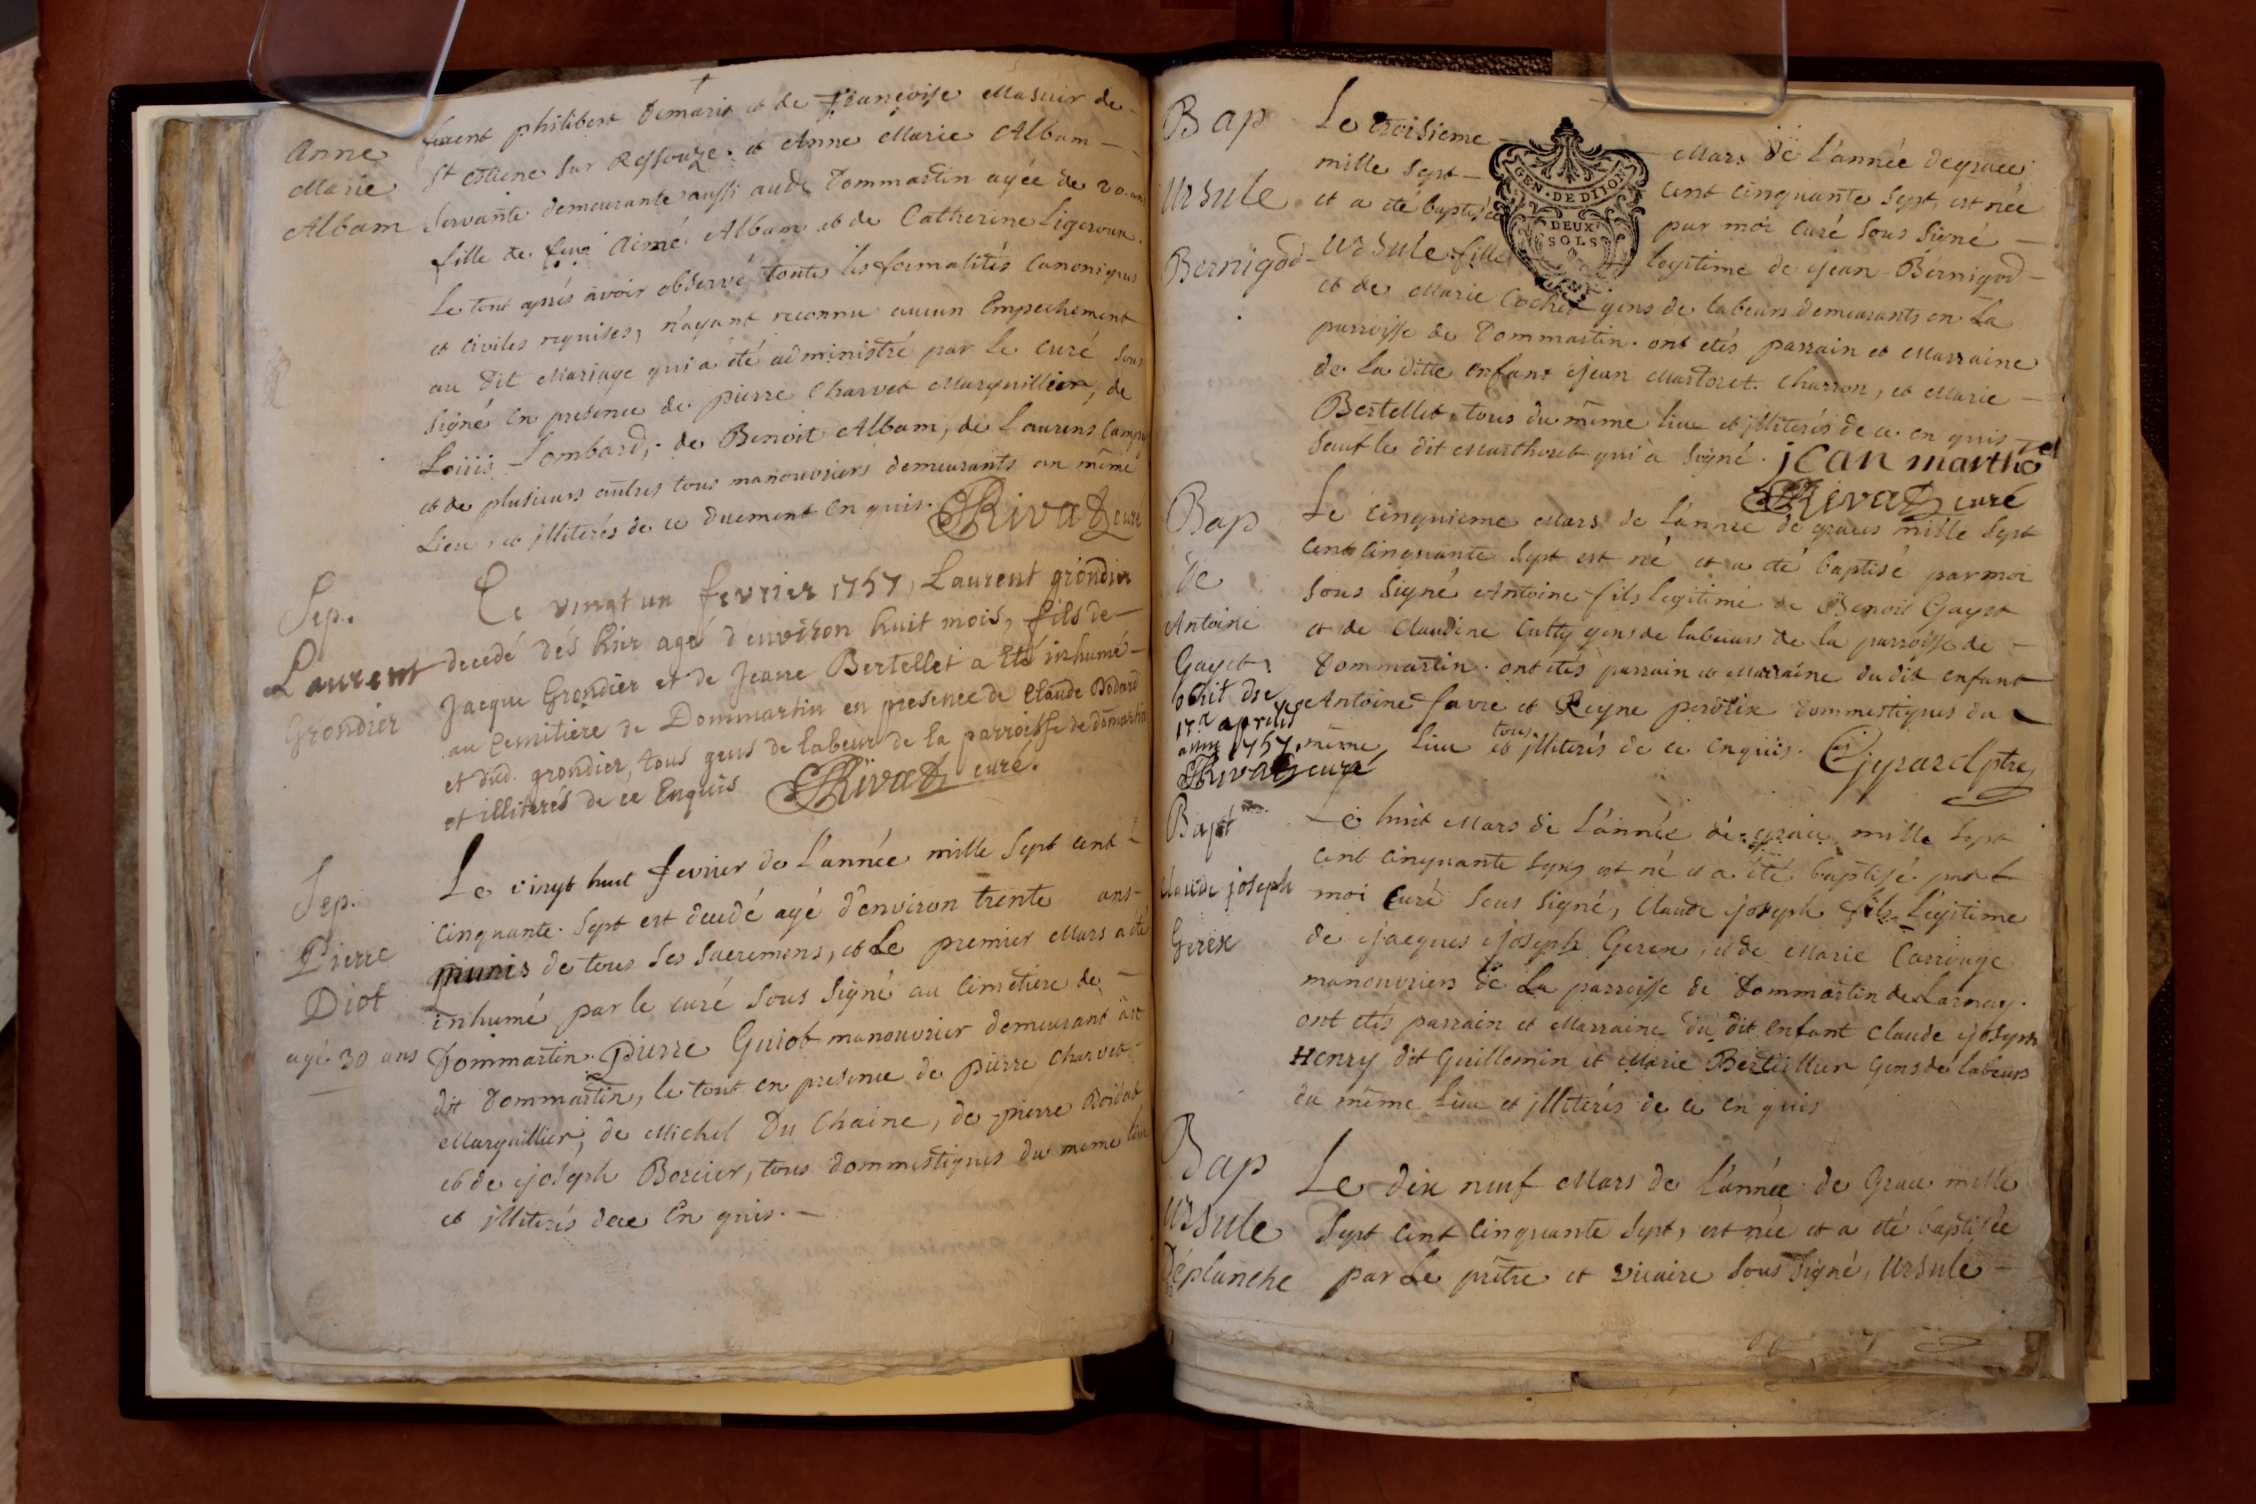 Anne
Marie
Albam
philibert Demaris et de françoise Masuir de
St Estiene sur Ressouze. et Anne Marie Albam
servante demeurante aussi aud. Dommartin agée de 20 ans
fille de feu Aimé Albam et de Catherine Ligeroux.
Le tout apprés avoir observé toutes les formalités canoniques
et civiles requises, n'ayant reconnu aucun Empechement
au dit Mariage qui a été administré par le curé sous
signé en presence de pierre Charvet Marguillier, de
Loüis Lombard, de Benoit Albam, de Laurens
et de plusieurs autres tous manouvriers demeurants au même
Lieu, et jlliterés de ce duement en quis. Rivat curé
Sep.
Laurent
Grondier
Le vingt un fevrier 1757, Laurent grondier
decedé dés hier agé d'environ huit mois, fils de
Jacque Grondier et de Jeanne Bertellet a été inhumé
au Cemitiere de Dommartin en presence de Claude Bodard
et dud. grondier, tous gens de labeur de la parroisse de domartin
et illiterés de ce Enquis Rivat curé.
Sep.
Pierre
Diot
agé 30 ans
Le vingt huit fevrier de L'année mille sept cent
cinquante sept est decedé agé d'environ trente ans
munis de tous ses sacremens, et Le premier Mars a été
inhumé par le curé sous signé au Cimetiere de
Dommartin. Pierre Guiot manouvrier demeurant au
dit Dommartin, le tout en presence de pierre Charvet
Marguillier, de Michel Du Chaine, de pierre
et de joseph Borcier, tous dommestiques du meme lieu
et jlliterés de ce En quis.
Bap
Ursule
Bernigod
Le troisieme Mars de L'année de grace
mille sept cent cinquante sept, est née
et a été baptisée par moi curé sous signé
Ursule fille legitime de jean Bernigod
et de Marie Cochet gens de labeurs demeurants en La
parroisse de Dommartin. ont etés parrain et Marraine
de La ditte enfant jean Martoret charron, et Marie
Bertellet tous du même lieu et jlliterés de ce en quis
sauf le dit Marthoret qui a signé. jean marthoret
Rivat curé
GEN. DE DIJON
DEUX
SOLS
Bap
de
Antoine
Gayet
obiit die
17a aprilis
anni 1757.
Rivat curé
Le cinquieme Mars de L'année de graces mille sept
cent cinquante sept est né et a été baptisé par moi
sous signé Antoine fils legitime de Benoit Gayet
et de Claudine Cutty gens de labeurs de la parroisse de
Dommartin. ont etés parrain et Marraine du dit enfant
Antoine favre et Reyne perolix Dommestiques du
même Lieu tous et jlliterés de ce enquis. Gyrard ptre
Bapt
Claude joseph
Gerex
Le huit Mars de L'année de grace mille sept
cent cinquante sept est né et a été baptisé par
moi curé sous signé, Claude joseph fils Légitime
de jacques joseph Gerex, et de Marie Carruge
manouvriers de La parroisse de Dommartin de Larnay.
ont etés parrain et Marraine du dit enfant Claude joseph
Henry dit Guillemin et Marie Bertillier Gens de labeurs
du même Lieu et jlliterés de ce en quis
Bap
Ursule
Déplanche
Le dix neuf Mars de L'année de Grace mille
sept cent cinquante sept, est née et a été baptisée
par Le prêtre et vicaire sous signé, Ursule